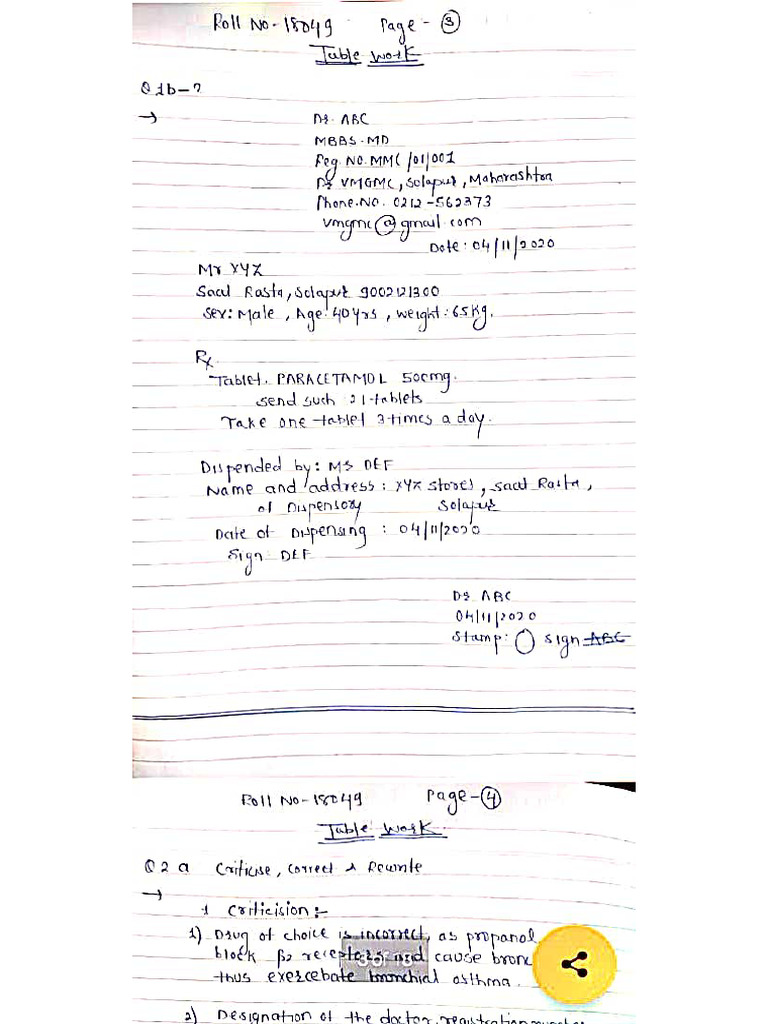 Roll No-18049 Page-③
Table Work
Q 1b-?
→ Dr. ABC
MBBS.MD
Reg. NO. MMC/01/001
Dr VMGMC, Solapur, Maharashtra
Phone.No. 0212-562373
vmgmc@gmail.com
Date: 04/11/2020
Mr XYZ
Saat Rasta, Solapur 9002121300
Sex: Male, Age: 40yrs, weight: 65kg.
Rx
Tablet. PARACETAMOL 500mg.
send such 21-tablets
Take one tablet 3-times a day.
Dispended by: MS DEF
Name and address: XYZ stores, saat Rasta,
of Dispensory Solapur
Date of Dispensing : 04/11/2020
Sign: DEF
Dr ABC
04/11/2020
Stamp: sign ABC
Roll No-18049 Page-④
Table Work
Q 2 a Criticise, correct & Rewrite
→
1 Criticision:-
1) Drug of choice is incorrect, as propanol
block β2 receptors and cause bron
3 of 13
thus exercebate bronchial asthma.
2) Designation of the doctor, registration